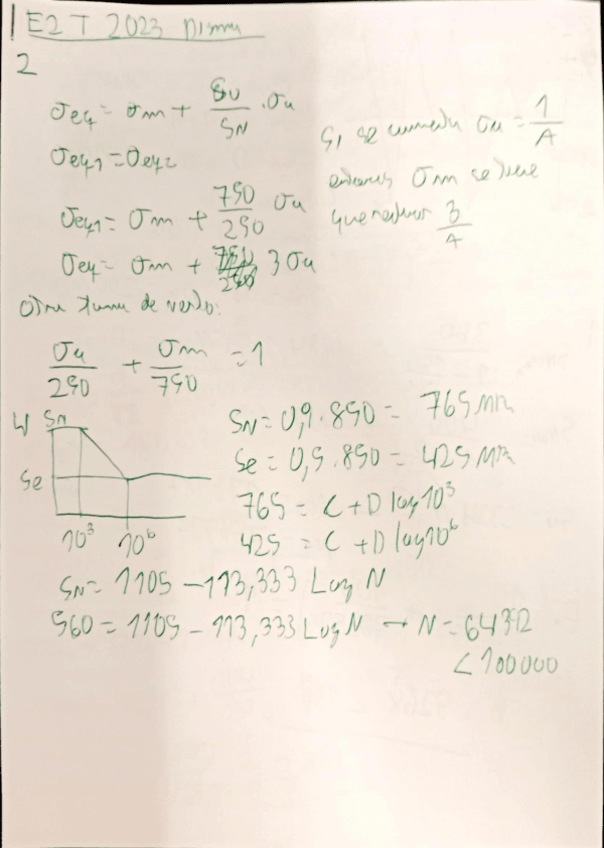 E2T 2023 Dismu
2
σeq = σm + Su/SN · σa
σeq1 = σeq2
σeq1 = σm + 750/250 σa
σeq = σm + 3 σa
Si se aumenta σa = 1/A
entonces σm se tiene
que reducir 3/A
Otra forma de verlo:
σa/250 + σm/750 = 1
4 SN
Se
10³ 10⁶
SN = 0,9 · 850 = 765 MPa
Se = 0,5 · 850 = 425 MPa
765 = C + D log 10³
425 = C + D log 10⁶
SN = 1105 - 113,333 Log N
560 = 1105 - 113,333 Log N → N = 64312
< 100000